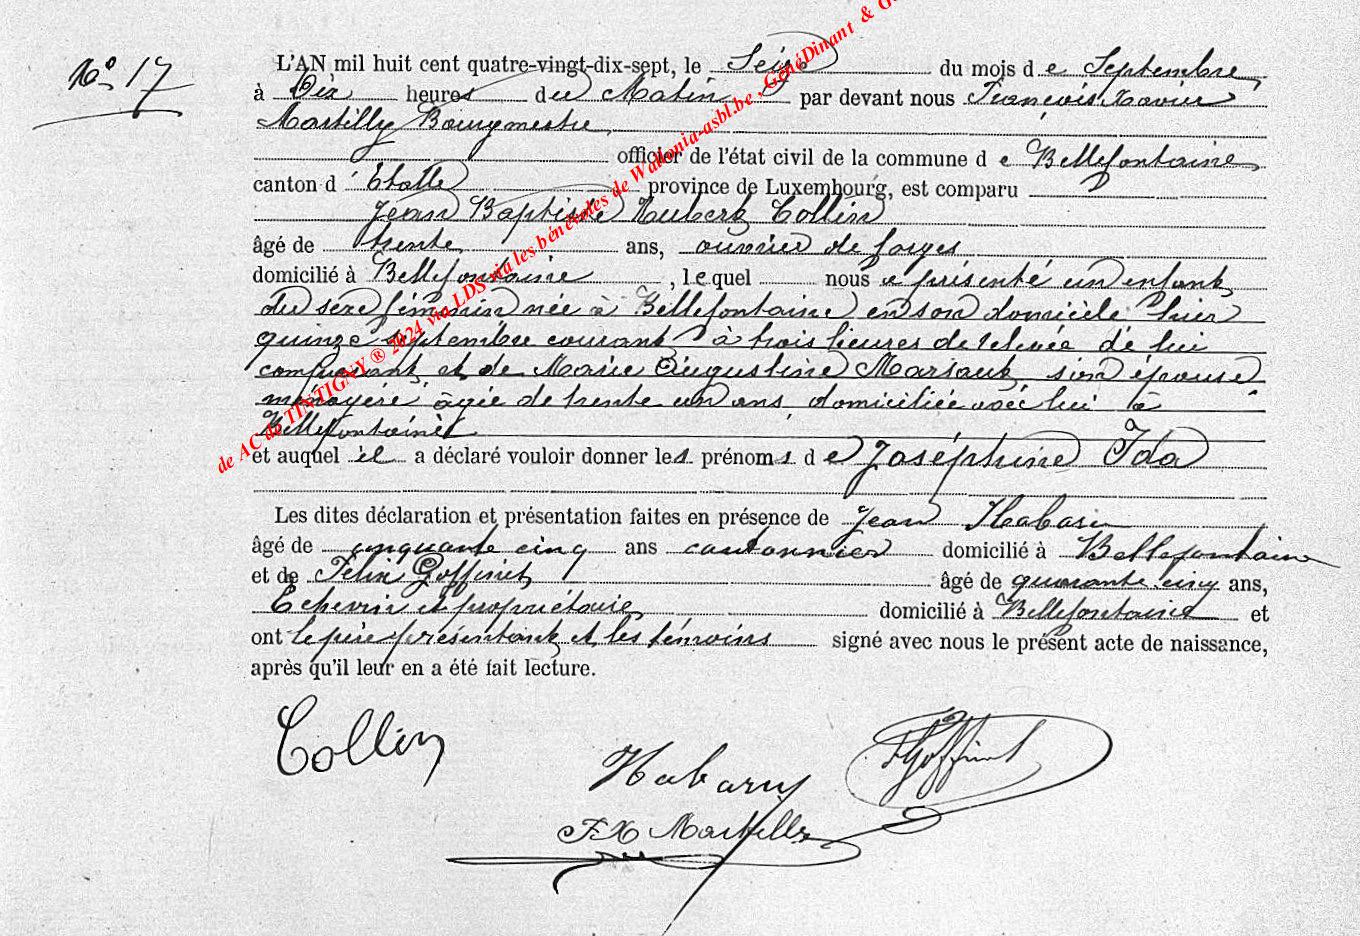 No 17
L'AN mil huit cent quatre-vingt-dix-sept, le Seize du mois de Septembre
à Dix heures du Matin par devant nous François Xavier
Martilly Bourgmestre
officier de l'état civil de la commune de Bellefontaine
canton d'Etalle province de Luxembourg, est comparu
Jean Baptiste Hubert Collin
âgé de trente ans, ouvrier de forges
domicilié à Bellefontaine, lequel nous a présenté un enfant
du sexe féminin née à Bellefontaine en son domicile hier
quinze septembre courant à trois heures de relevée de lui
comparant et de Marie Augustine son épouse
ménagère âgée de trente un ans domiciliée avec lui à
Bellefontaine
et auquel il a déclaré vouloir donner les prénoms de Joséphine Ida
Les dites déclaration et présentation faites en présence de Jean Habary
âgé de cinquante cinq ans cantonnier domicilié à Bellefontaine
et de Félix Goffinet âgé de quarante cinq ans,
Echevin et propriétaire domicilié à Bellefontaine et
ont le père présentant et les témoins signé avec nous le présent acte de naissance,
après qu'il leur en a été fait lecture.
Collin
Habary
F Goffinet
FX Martilly
de AC de TINTIGNY ® 2024 via LDS via les bénévoles de Wallonia-asbl.be , GénéDinant & G